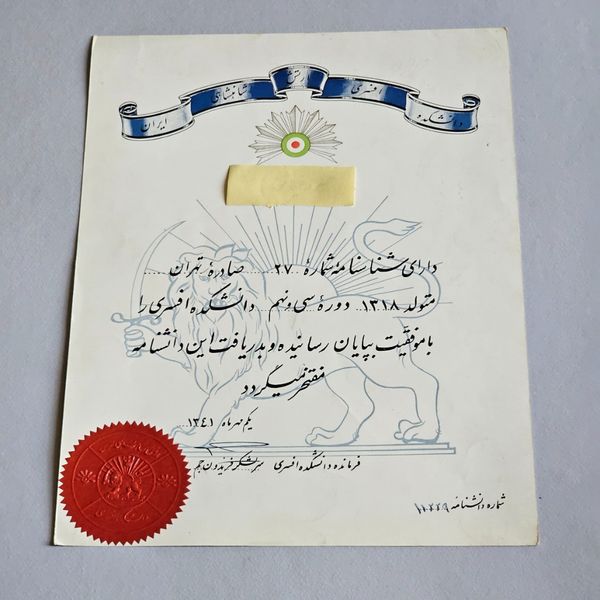 دانشکده افسری ارتش شاهنشاهی ایران
دارای شناسنامه شمارهٔ ۲۷ صادرهٔ تهران
متولد ۱۳۱۸ دورهٔ سی و نهم دانشکده افسری را
با موفقیت بپایان رسانیده و بدریافت این دانشنامه
مفتخر میگردد
یکم مهرماه ۱۳۴۱
فرمانده دانشکده افسری سرلشکر فریدون جم
شماره دانشنامه